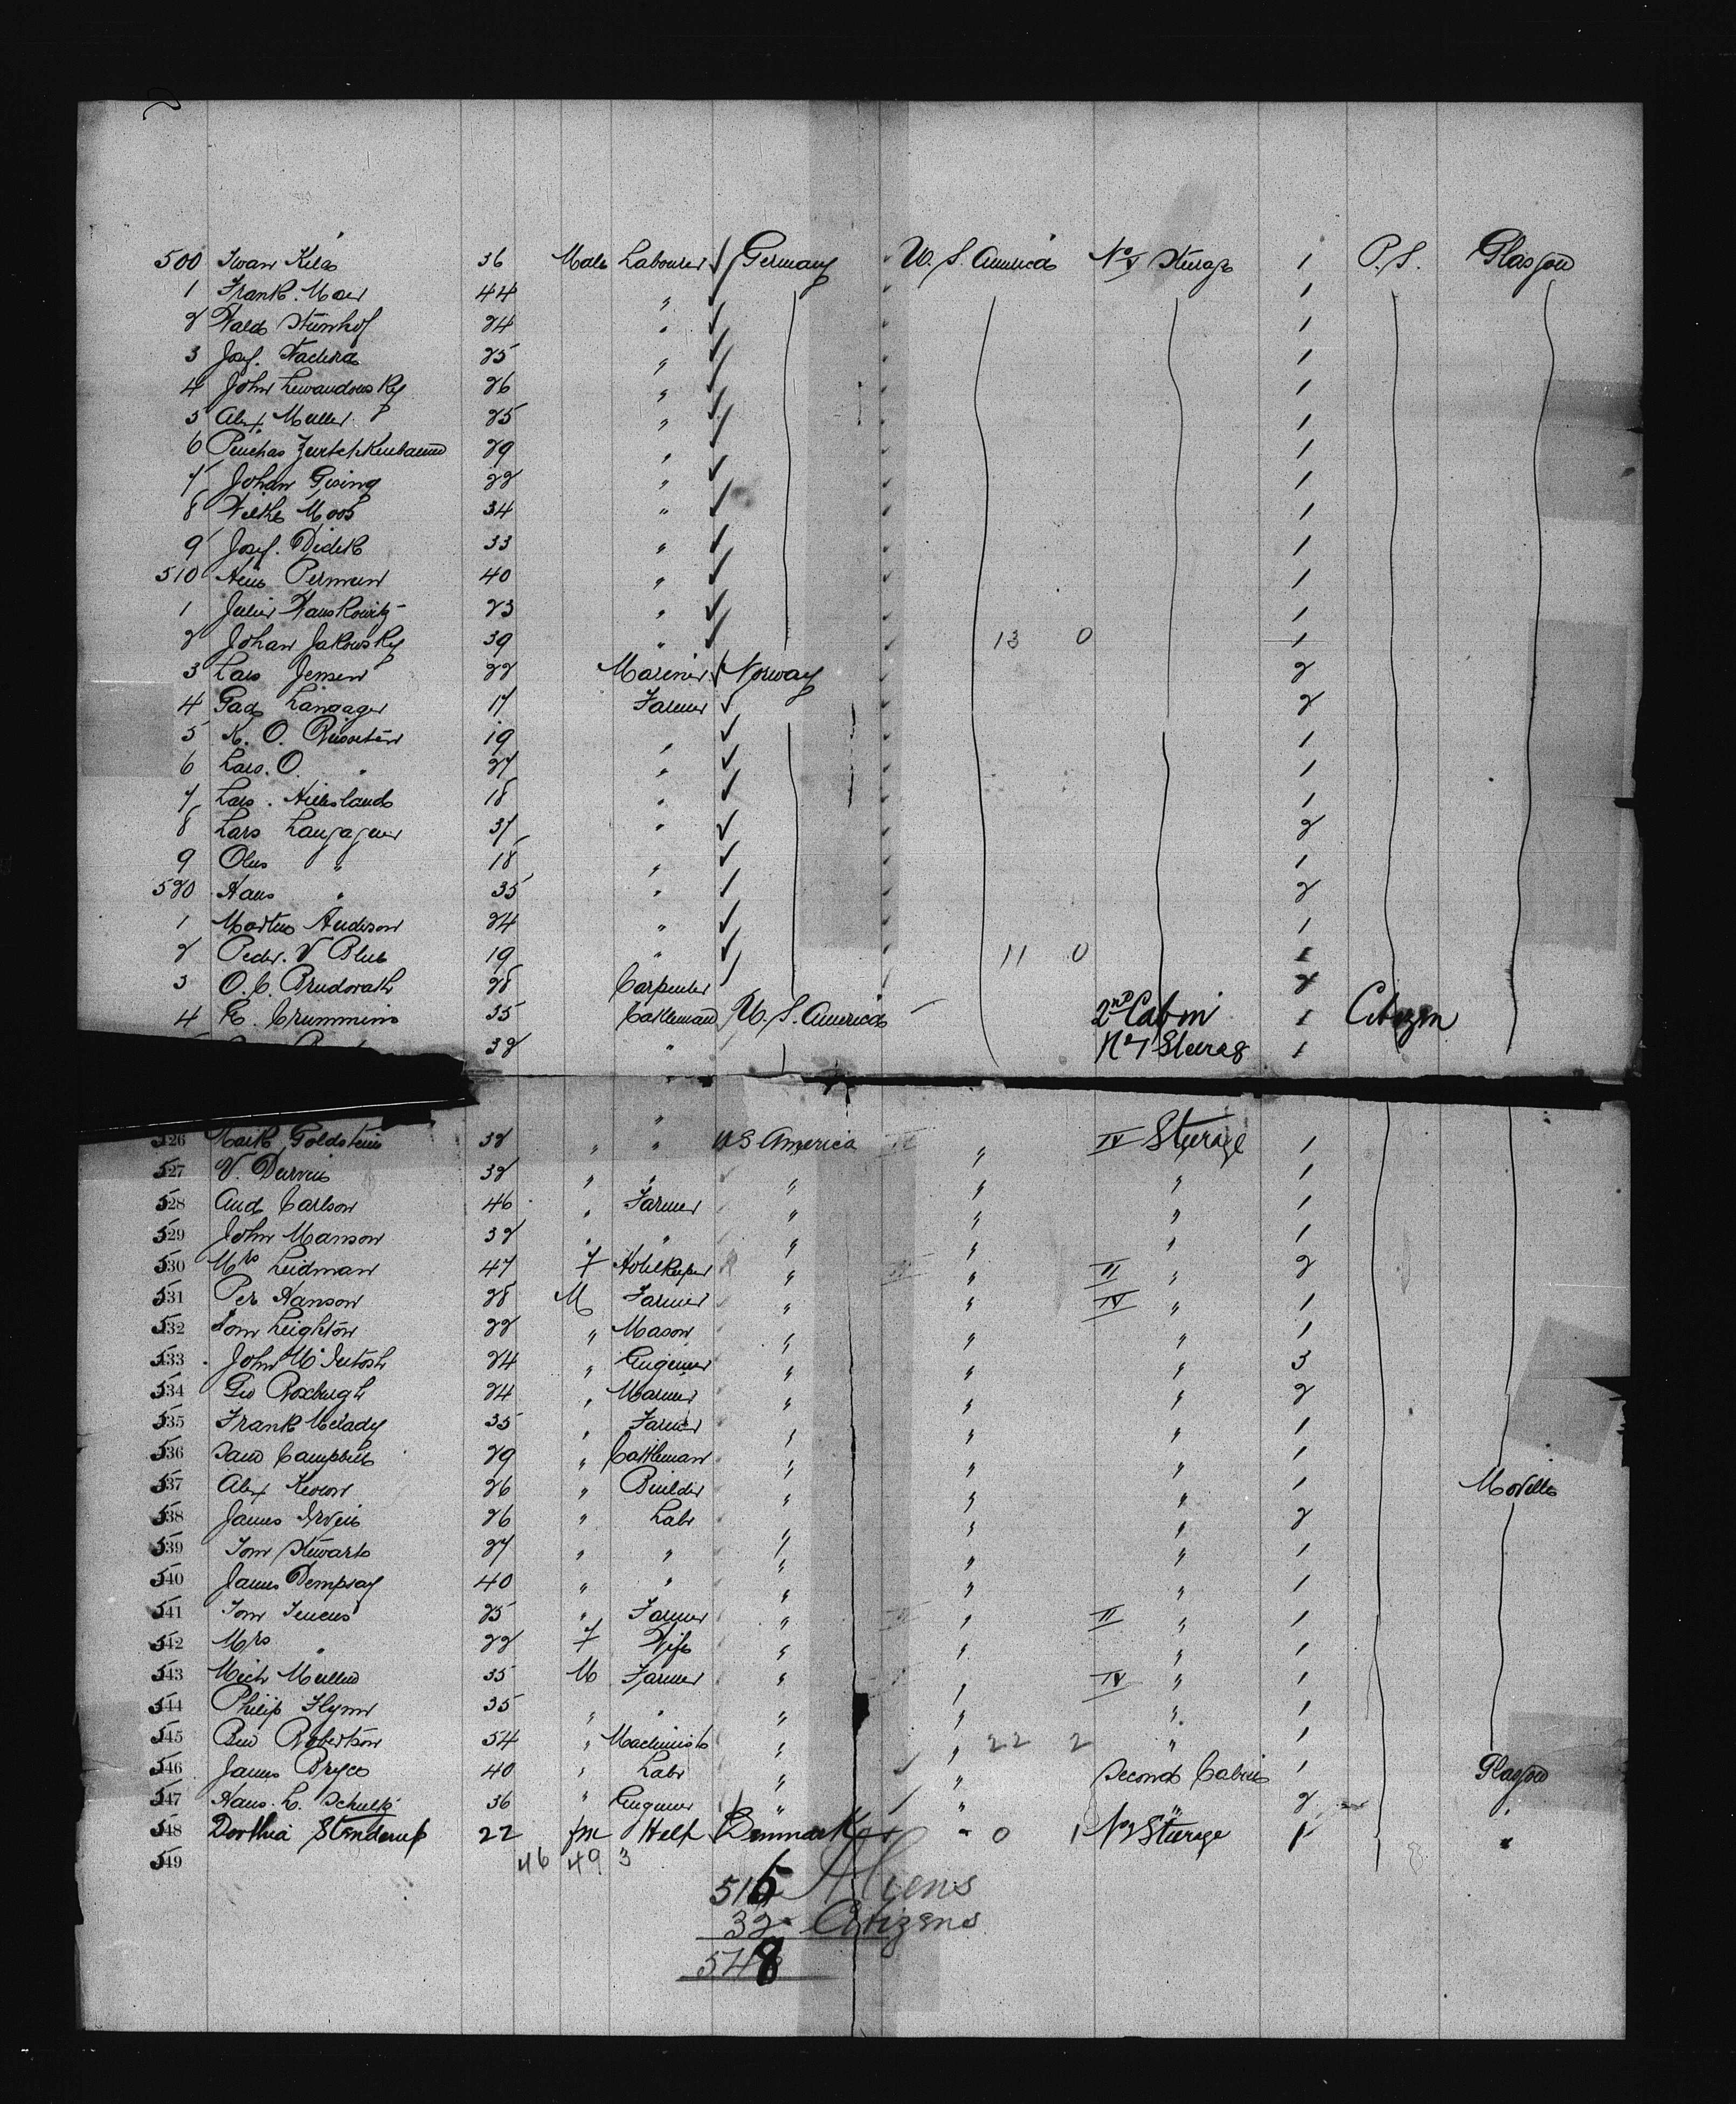 500 Iwan Kilas 36 Male Labourer Germany U.S. America No 1 Steerage 1 P.S. Glasgow
1 Frank. Moer 44 " 1
2 Walds Steinhof 24 " 1
3 Josef. Wachera 25 " 1
4 John Lewandowsky 26 " 1
5 Alex. Muller 25 " 1
6 29 " 1
7 Johan Gising 22 " 1
8 Moos 34 " 1
9 Josef. Didek 33 " 1
510 Perman 40 " 1
1 23 " 1
2 Johan Jakowsky 39 " 13 0 1
3 Lars Jensen 22 Mariner Norway 2
4 Langager 17 Farmer 2
5 K. O. 19 " 1
6 Lars. O. " 27 " 1
7 Lars. Hillesland 18 " 1
8 Lars Langager 37 " 2
9 Olus " 18 " 1
520 Hans " 35 " 2
1 Martus Anderson 24 " 1
2 Peder. V Blue 19 " 11 0 1
3 O. C. Brudorath 28 Carpenter 2
4 E. Crummins 35 Cattleman U.S. America 2nd Cabin 1 Citizen
32 " No 1 Steerag 1
526 Mark Goldstein 32 " " U S America " IV Steerage 1
527 V. Darvies 32 " " " " " 1
528 Aud Carlson 46 " Farmer " " " 1
529 John Manson 32 " " " " " 1
530 Mrs Leidman 47 F Hotelkeeper " " II " 2
531 Per Hanson 28 M Farmer " " IV " 1
532 Tom Leighton 22 " Mason " " " 1
533 John McIntosh 24 " Engineer " " " 3
534 Geo Roxburgh 24 " Mariner " " " 2
535 Frank Melady 35 " Farmer " " " 1
536 Sam Campbell 29 " Cattleman " " " 1
537 Alex Keown 26 " Builder " " " 1 Moville
538 James Irvin 26 " Labr " " " 2
539 Tom Stewart 27 " " " " " 1
540 James Dempsay 40 " " " " " 1
541 Tom 25 " Farmer " " II " 1
542 Mrs " 22 F Wife " " " 1
543 Mich Mullen 35 M Farmer " " IV " 1
544 Philip Flynn 35 " " " " " 1
545 Ben Robertson 54 " Machinist " " 22 2 " 1
546 James Bryce 40 " Labr " " Second Cabin 1 Glasgow
547 Hans. L. Schultz 36 " Engineer " " " 2 "
548 Dorthea Stenderup 22 fm Help Denmark " 0 1 No 2 Steerage 1 "
549
46 49 3
516 Aliens
32 Citizens
548